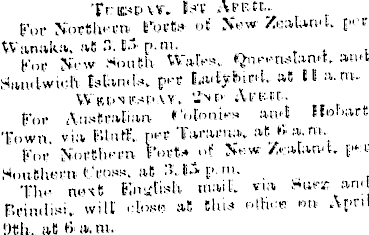 TUESDAY, 1ST APRIL.
For Northern Ports of New Zealand, per
Wanaka, at 3.15 p.m.
For New South Wales, Queensland, and
Sandwich Islands, per Ladybird, at 11 a.m.
WEDNESDAY, 2ND APRIL.
For Australian Colonies and Hobart
Town, via Bluff, per Tararua, at 6 a.m.
For Northern Ports of New Zealand, per
Southern Cross, at 3.15 p.m.
The next English mail, via Suez and
Brindisi, will close at this office on April
9th, at 6 a.m.